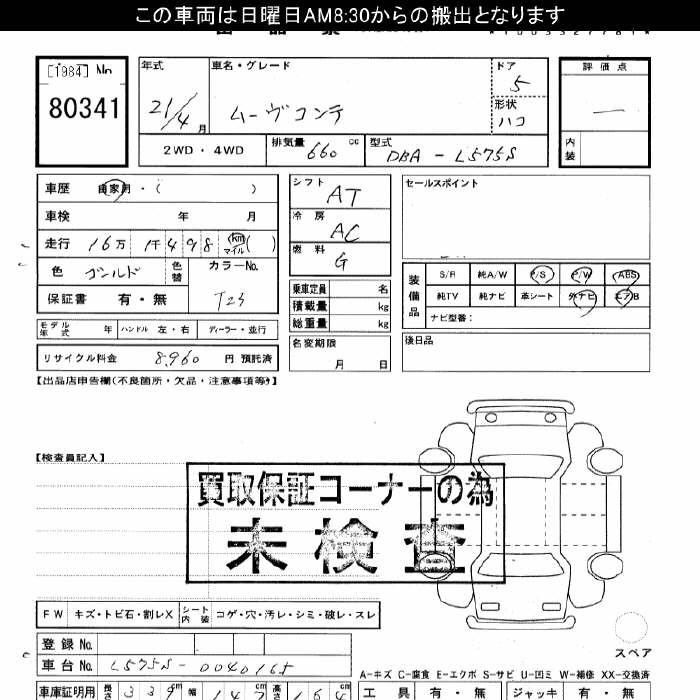 この車両は日曜日AM8:30からの搬出となります
[1984] No
80341
年式 車名・グレード ドア 評価点
21/4月 ムーヴコンテ 5 —
形状 ハコ
2WD・4WD 排気量 660 cc 型式 DBA-L575S 内装
車歴 自家用・( )
シフト AT
セールスポイント
車検 年 月
冷房 AC
走行 16万 1千498 km マイル ( )
燃料 G
色 ゴールド 色替 カラーNo. T23
装備品 S/R 純A/W P/S P/W ABS
保証書 有・無
乗車定員 名
純TV 純ナビ 革シート 外ナビ エアB
積載量 kg
ナビ型番:
総重量 kg
モデル年式 年 ハンドル 左・右 ディーラー・並行
名変期限 月 日
後日品
リサイクル料金 8,960 円 預託済
【出品店申告欄(不良箇所・欠品・注意事項等)】
【検査員記入】
買取保証コーナーの為
未検査
FW キズ・トビ石・割レX シート内装 コゲ・穴・汚レ・シミ・破レ・スレ
スペア
登録No.
車台No. L575S-0040165
A-キズ C-腐食 E-エクボ S-サビ U-凹ミ W-補修 XX-交換済
車庫証明用 長さ 339cm 幅 147 高さ 164
工具 有・無 ジャッキ 有・無